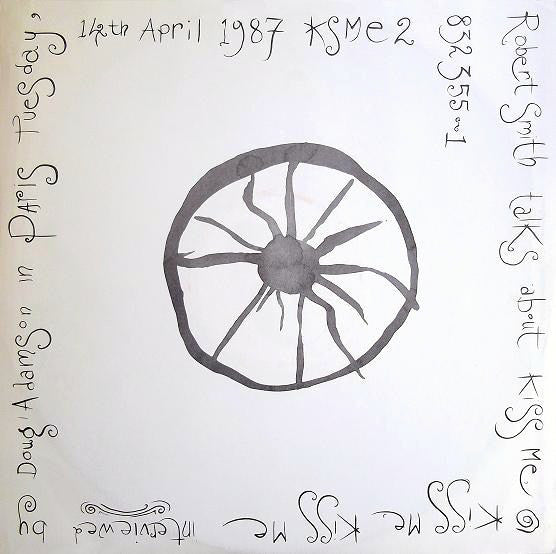 Robert Smith talks about Kiss Me
Kiss Me Kiss Me interviewed
by Doug Adamson in Paris Tuesday,
14th April 1987 KSMe 2
832 355~1